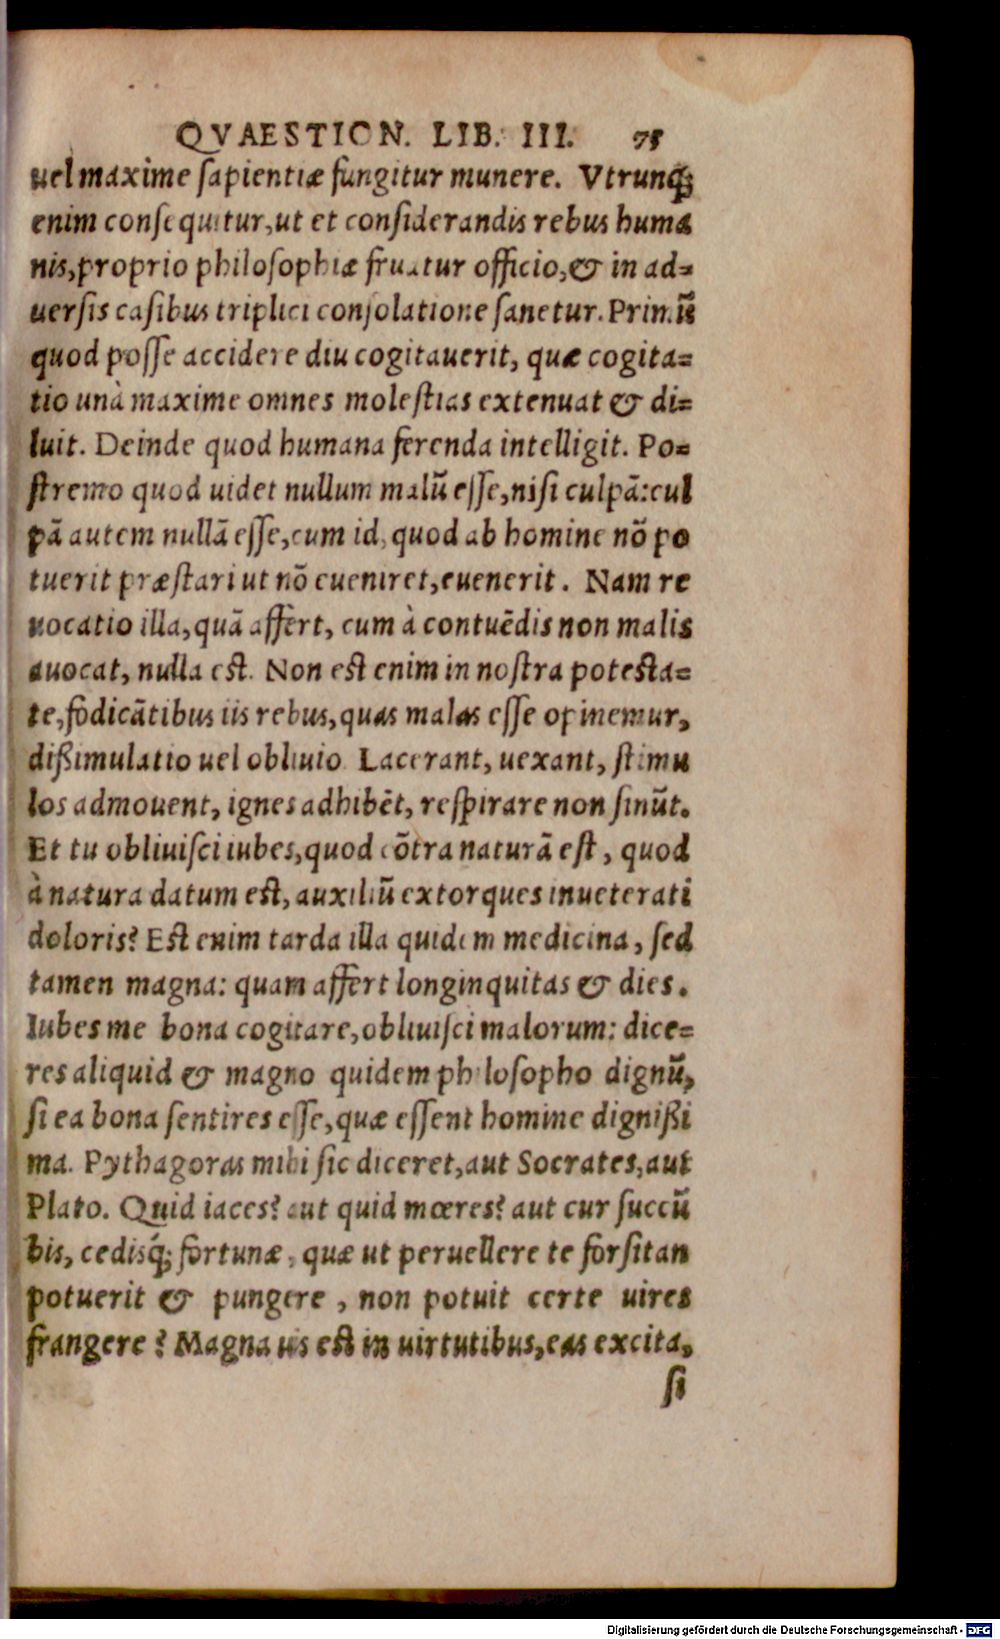 QVAESTION. LIB. III. 75
uel maxime ſapientiæ fungitur munere. Vtrunq;
enim conſequitur, ut et conſiderandis rebus huma
nis, proprio philoſophiæ fruatur officio, & in ad=
uerſis caſibus triplici conſolatione ſanetur. Primū
quod poſſe accidere diu cogitauerit, quæ cogita=
tio unà maxime omnes moleſtias extenuat & di=
luit. Deinde quod humana ferenda intelligit. Po=
ſtremo quod uidet nullum malū eſſe, niſi culpā: cul
pā autem nullā eſſe, cum id, quod ab homine nō po
tuerit præſtari ut nō eueniret, euenerit. Nam re
uocatio illa, quā affert, cum à contuēdis non malis
auocat, nulla eſt. Non eſt enim in noſtra poteſta=
te, fodicātibus iis rebus, quas malas eſſe opinemur,
dißimulatio uel obliuio. Lacerant, uexant, ſtimu
los admouent, ignes adhibēt, reſpirare non ſinūt.
Et tu obliuiſci iubes, quod cōtra naturā eſt, quod
à natura datum eſt, auxiliū extorques inueterati
doloris? Eſt enim tarda illa quidem medicina, ſed
tamen magna: quam affert longinquitas & dies.
Iubes me bona cogitare, obliuiſci malorum: dice=
res aliquid & magno quidem philoſopho dignū,
ſi ea bona ſentires eſſe, quæ eſſent homine dignißi
ma. Pythagoras mihi ſic diceret, aut Socrates, aut
Plato. Quid iaces? aut quid mœres? aut cur ſuccū
bis, cedisq́; fortunæ, quæ ut peruellere te forſitan
potuerit & pungere, non potuit certe uires
frangere? Magna uis eſt in uirtutibus, eas excita,
ſi
Digitalisierung gefördert durch die Deutsche Forschungsgemeinschaft - DFG